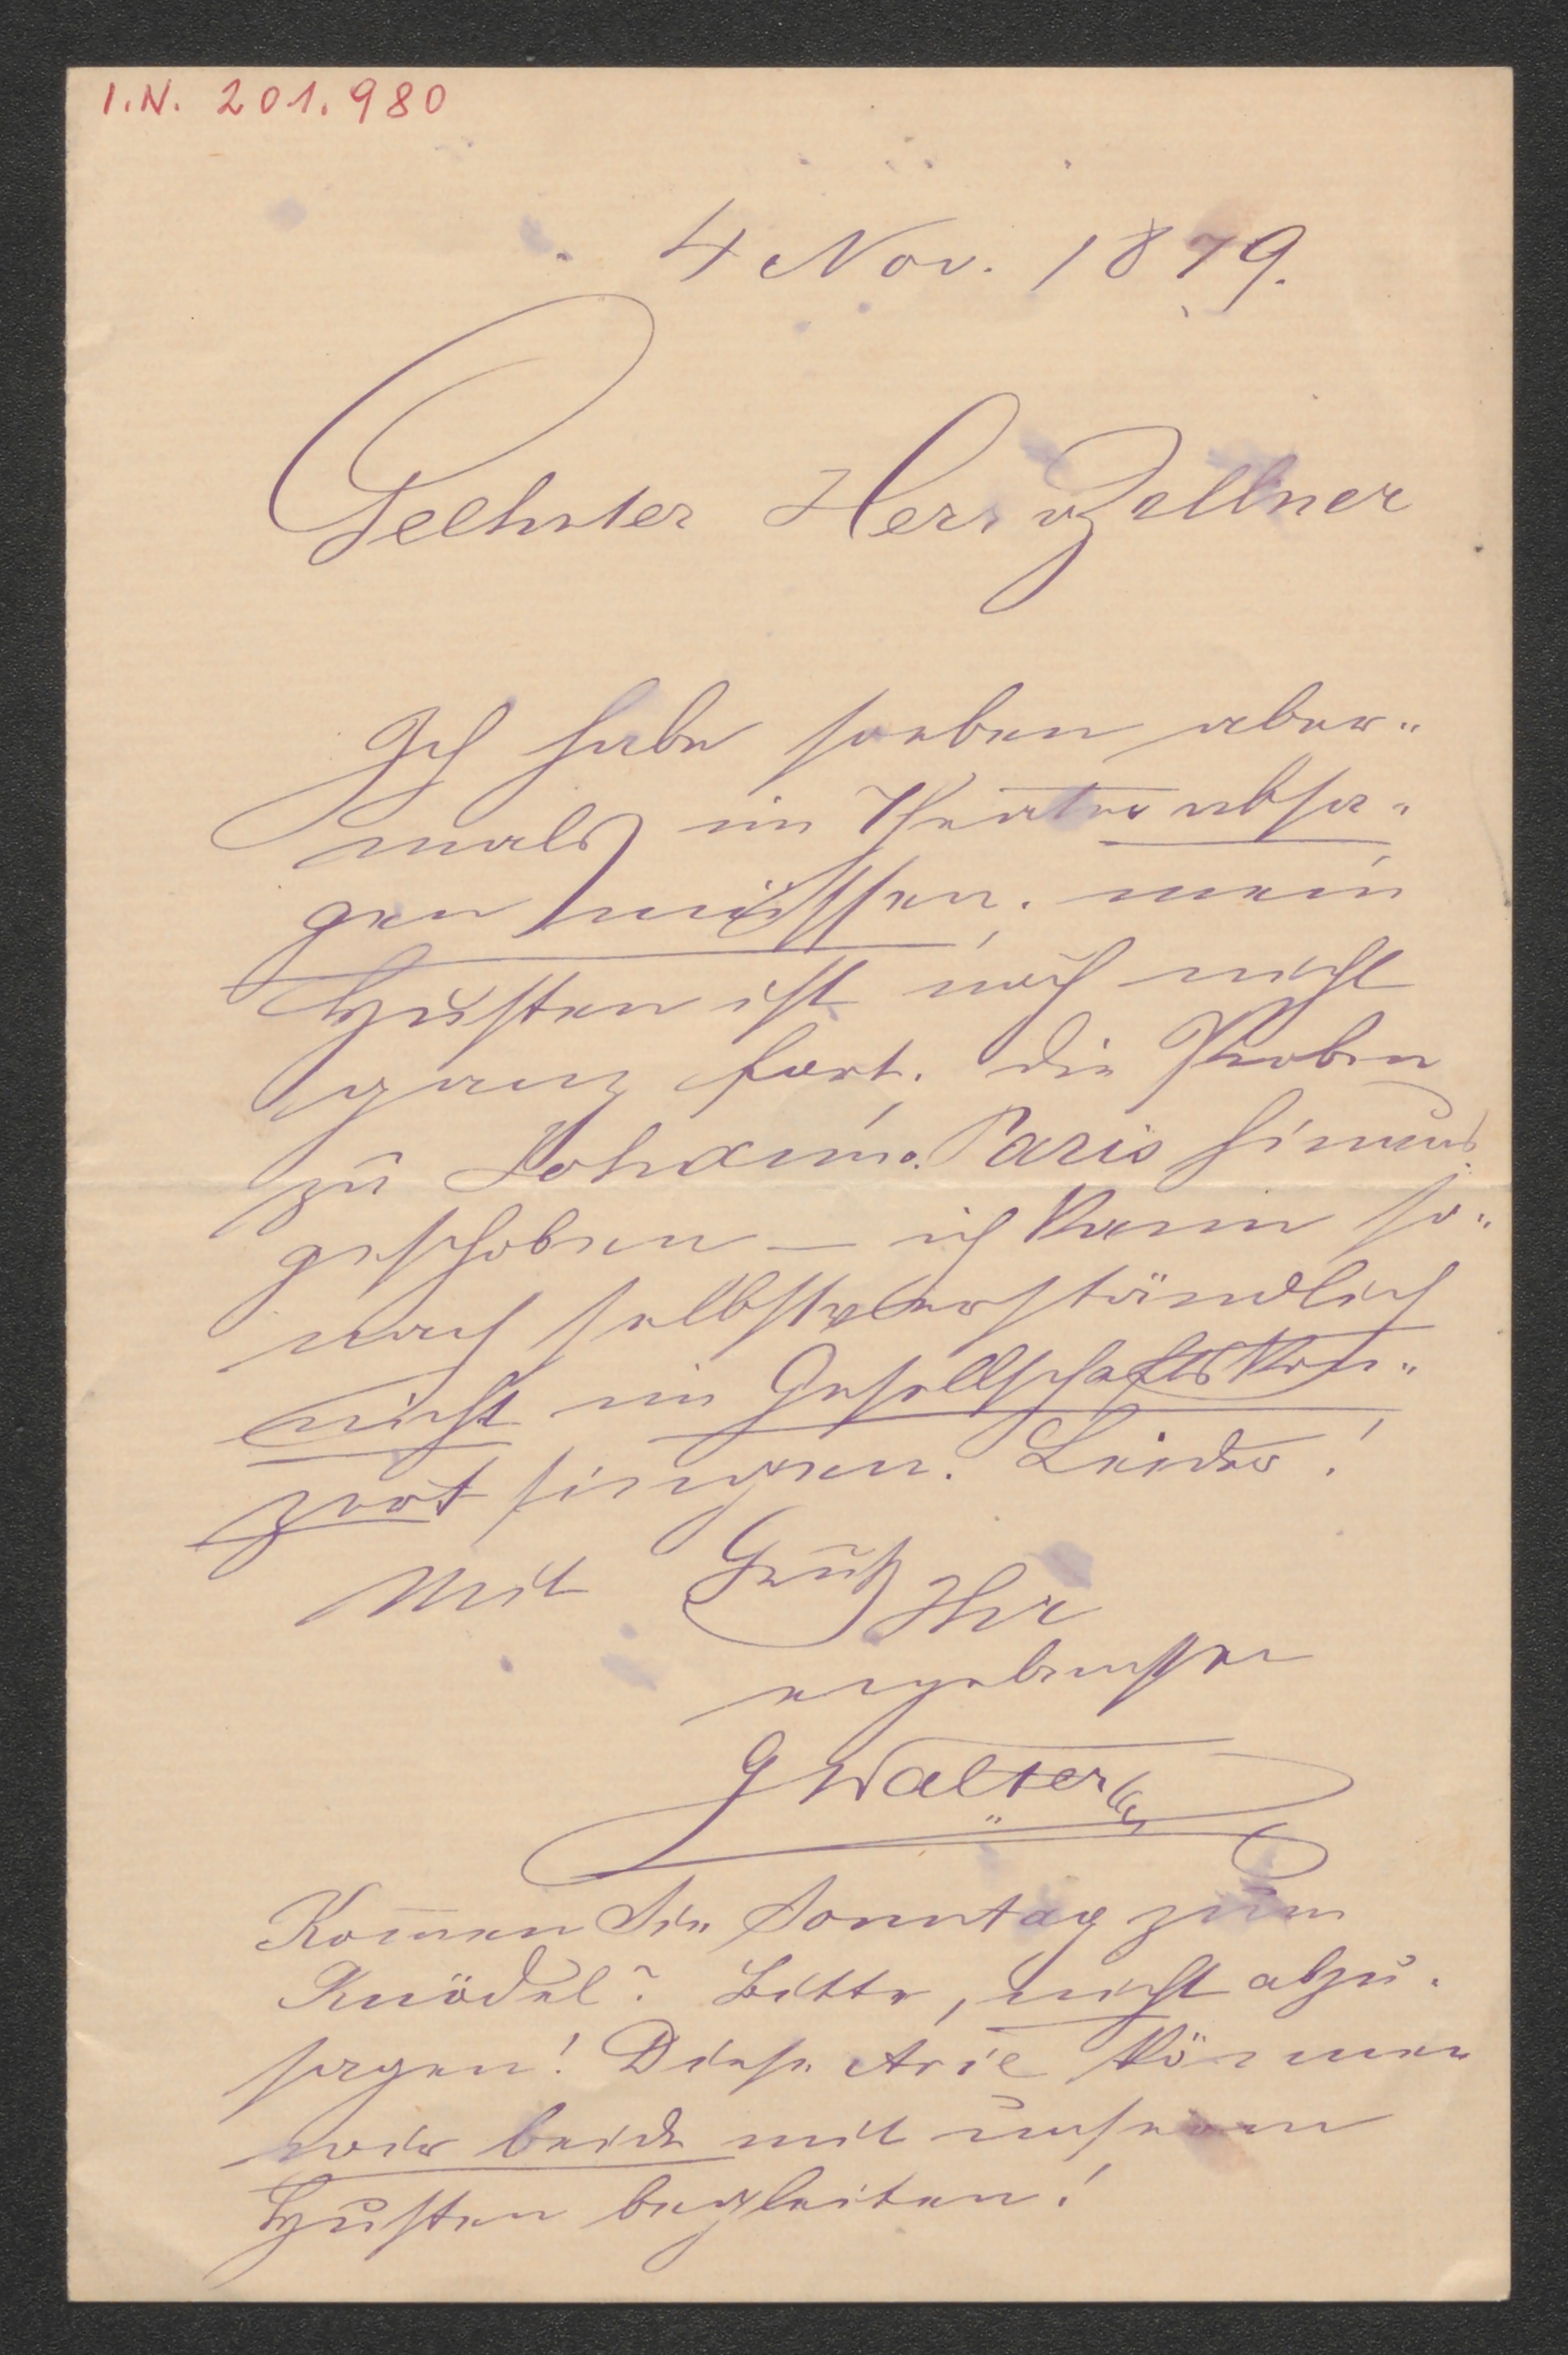 I.N. 201.980
4 Nov. 1879.
Geehrter Herr v Zellner
Ich habe soeben aber„
mals im Theater absa„
gen müssen. mein
Husten ist noch nicht
ganz fort. Die Proben
zu Johann v. Paris hinaus
geschoben – ich kann so„
nach selbstverständlich
nicht im Gesellschaftskon„
zert singen. Leider!
Mit Gruß Ihr
ergebenster
G Walter
Kom̅en Sie Sonntag zum
Knödel? Bitte, nicht abzu„
sagen! Diese Arie können
wir beide mit unserem
Husten begleiten!